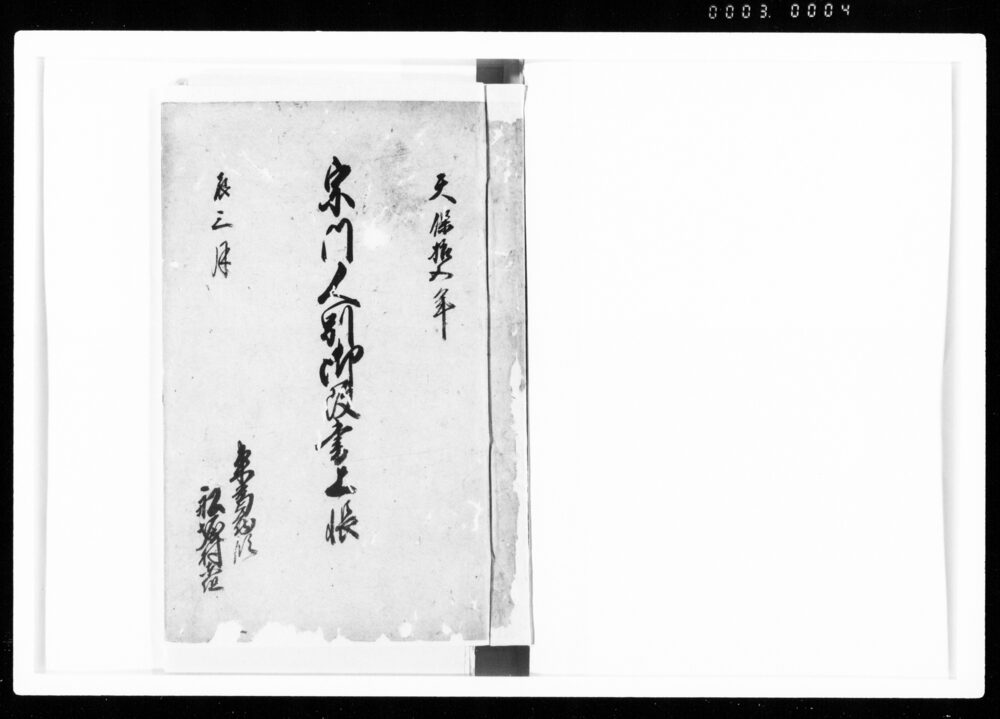 0003. 0004
天保拾五年
宗門人別御改書上帳
辰三月
東葛西領
塚村